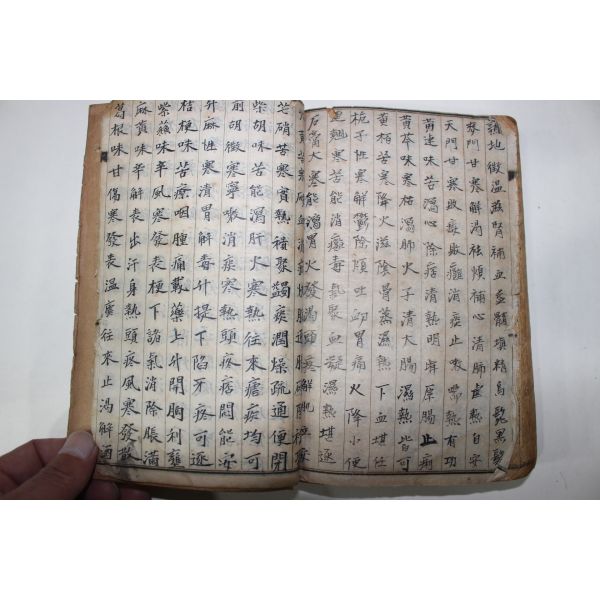 熟地微溫滋腎補血益髓塡精烏鬚黑髮
麥門甘寒解渴祛煩補心清肺虛熱自安
天門甘寒肺痿肺癰消痰止嗽喘熱有功
黃連味苦瀉心除痞清熱明眸厚腸止痢
黃芩味苦枯瀉肺火子清大腸濕熱皆可
黃栢苦寒降火滋陰骨蒸濕熱下血堪任
梔子性寒解鬱除煩吐衄胃痛火降小便
連翹寒苦能消癰毒氣聚血凝濕熱堪逐
石膏大寒能瀉胃火發渴頭疼解肌
大黃苦寒
芒硝苦寒實熱積聚蠲痰潤燥疏通便閉
柴胡味苦能瀉肝火寒熱往來瘧疾均可
前胡微寒寧嗽消痰寒熱頭疼痞悶能安
升麻性寒清胃解毒升提下陷牙疼可逐
桔梗味苦療咽腫痛載藥上升開胸利壅
紫蘇味辛風寒發表梗下諸氣消除脹滿
麻黃味辛解表出汗身熱頭疼風寒發散
葛根味甘傷寒發表溫瘧往來止渴解酒